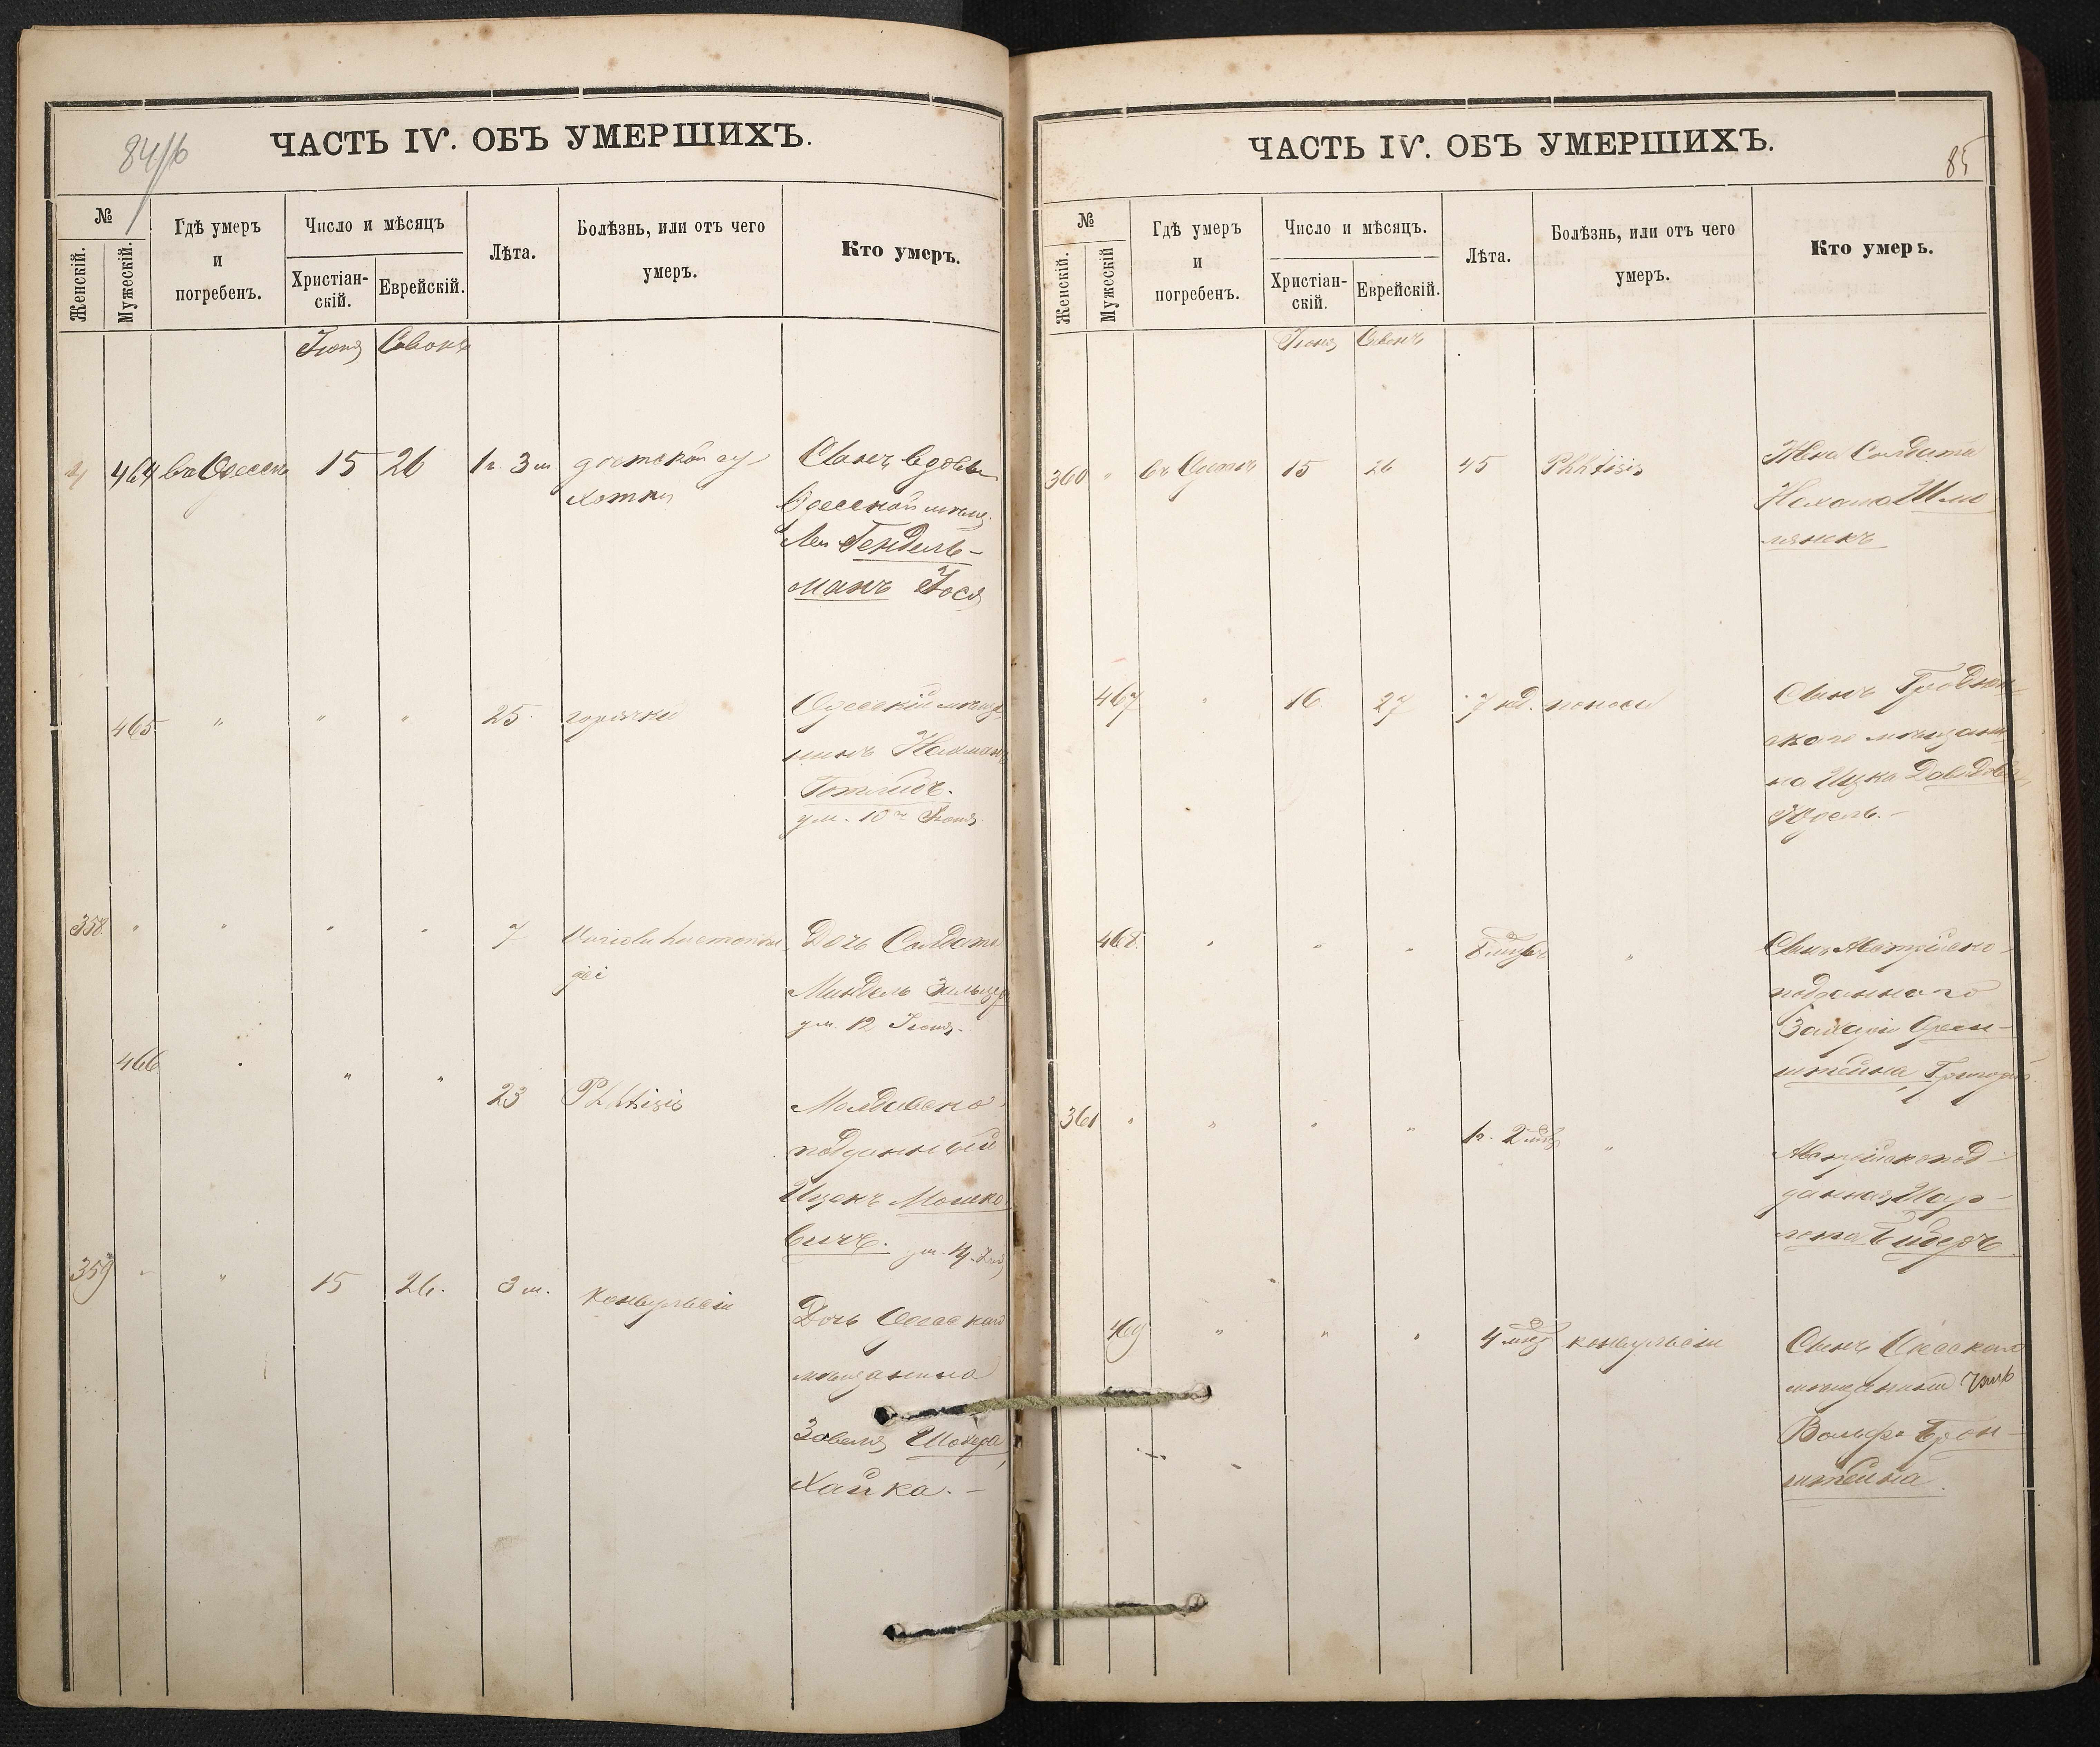 84/б
ЧАСТЬ IV. ОБЪ УМЕРШИХЪ.
№
Женскій.
Мужескій.
Гдѣ умеръ
и
погребенъ.
Число и мѣсяцъ
Христіан-
скій.
Еврейскій.
Лѣта.
Болѣзнь, или отъ чего
умеръ.
Кто умеръ.
Іюня Сивонъ
464 въ Одессѣ 15 26 1 г. 3 м дѣтской су-
хотки
Сынъ вдовы
Одесской мѣщ.
Леи Гендель-
манъ Іося
465 " " " 25 горячки
Одесскій мѣща-
нинъ Нахманъ
Готлибъ.
ум. 10го Іюня.
358 " " " " 7 Variola
Дочь Солдата
Миндель
ум. 12 Іюня.
466 " " " 23 Phthisis
Молдавско-
подданный
Ицекъ Мошко-
вичъ. ум. 14
359 " " 15 26. 3 м. конвульсіи
Дочь Одесскаго
мѣщанина
Завеля Шохера,
Хайка. -
85
ЧАСТЬ IV. ОБЪ УМЕРШИХЪ.
№
Женскій.
Мужескій
Гдѣ умеръ
и
погребенъ.
Число и мѣсяцъ.
Христіан-
скій.
Еврейскій.
Лѣта.
Болѣзнь, или отъ чего
умеръ.
Кто умеръ.
Іюня Сивонъ
360 " въ Одессѣ 15 26 45 Phthisis
Жена Солдата
Нехама Шмо
467 " 16 27 7 нед. поноса
Сынъ Гроднен-
скаго мѣщани-
на Ицка Давидова
Юдель. -
468 " " " 8 мцвъ "
Сынъ Австрійско-
подданнаго
Орен-
штейна, Григорій
361 " " " " 1 г. 2 мца "
Австрійскопод-
данная Шар-
лота Бидеръ
469 " " " 4 мца конвульсіи
Сынъ Одесскаго
мѣщанина
Вольфа Брон-
штейна.